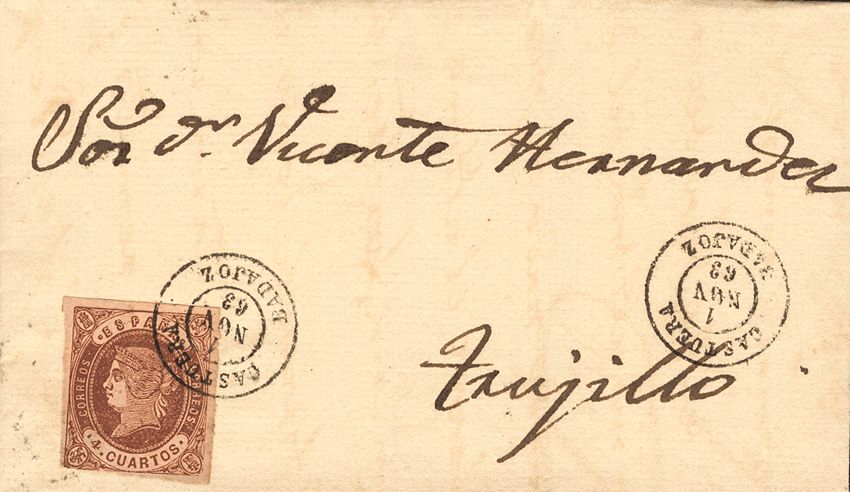 Sor. dn. Vicente Hernandez
Trujillo
CASTUERA
1
NOV
63
BADAJOZ
CASTUERA
1
NOV
63
BADAJOZ
ESPAÑA
CORREOS
4. CUARTOS